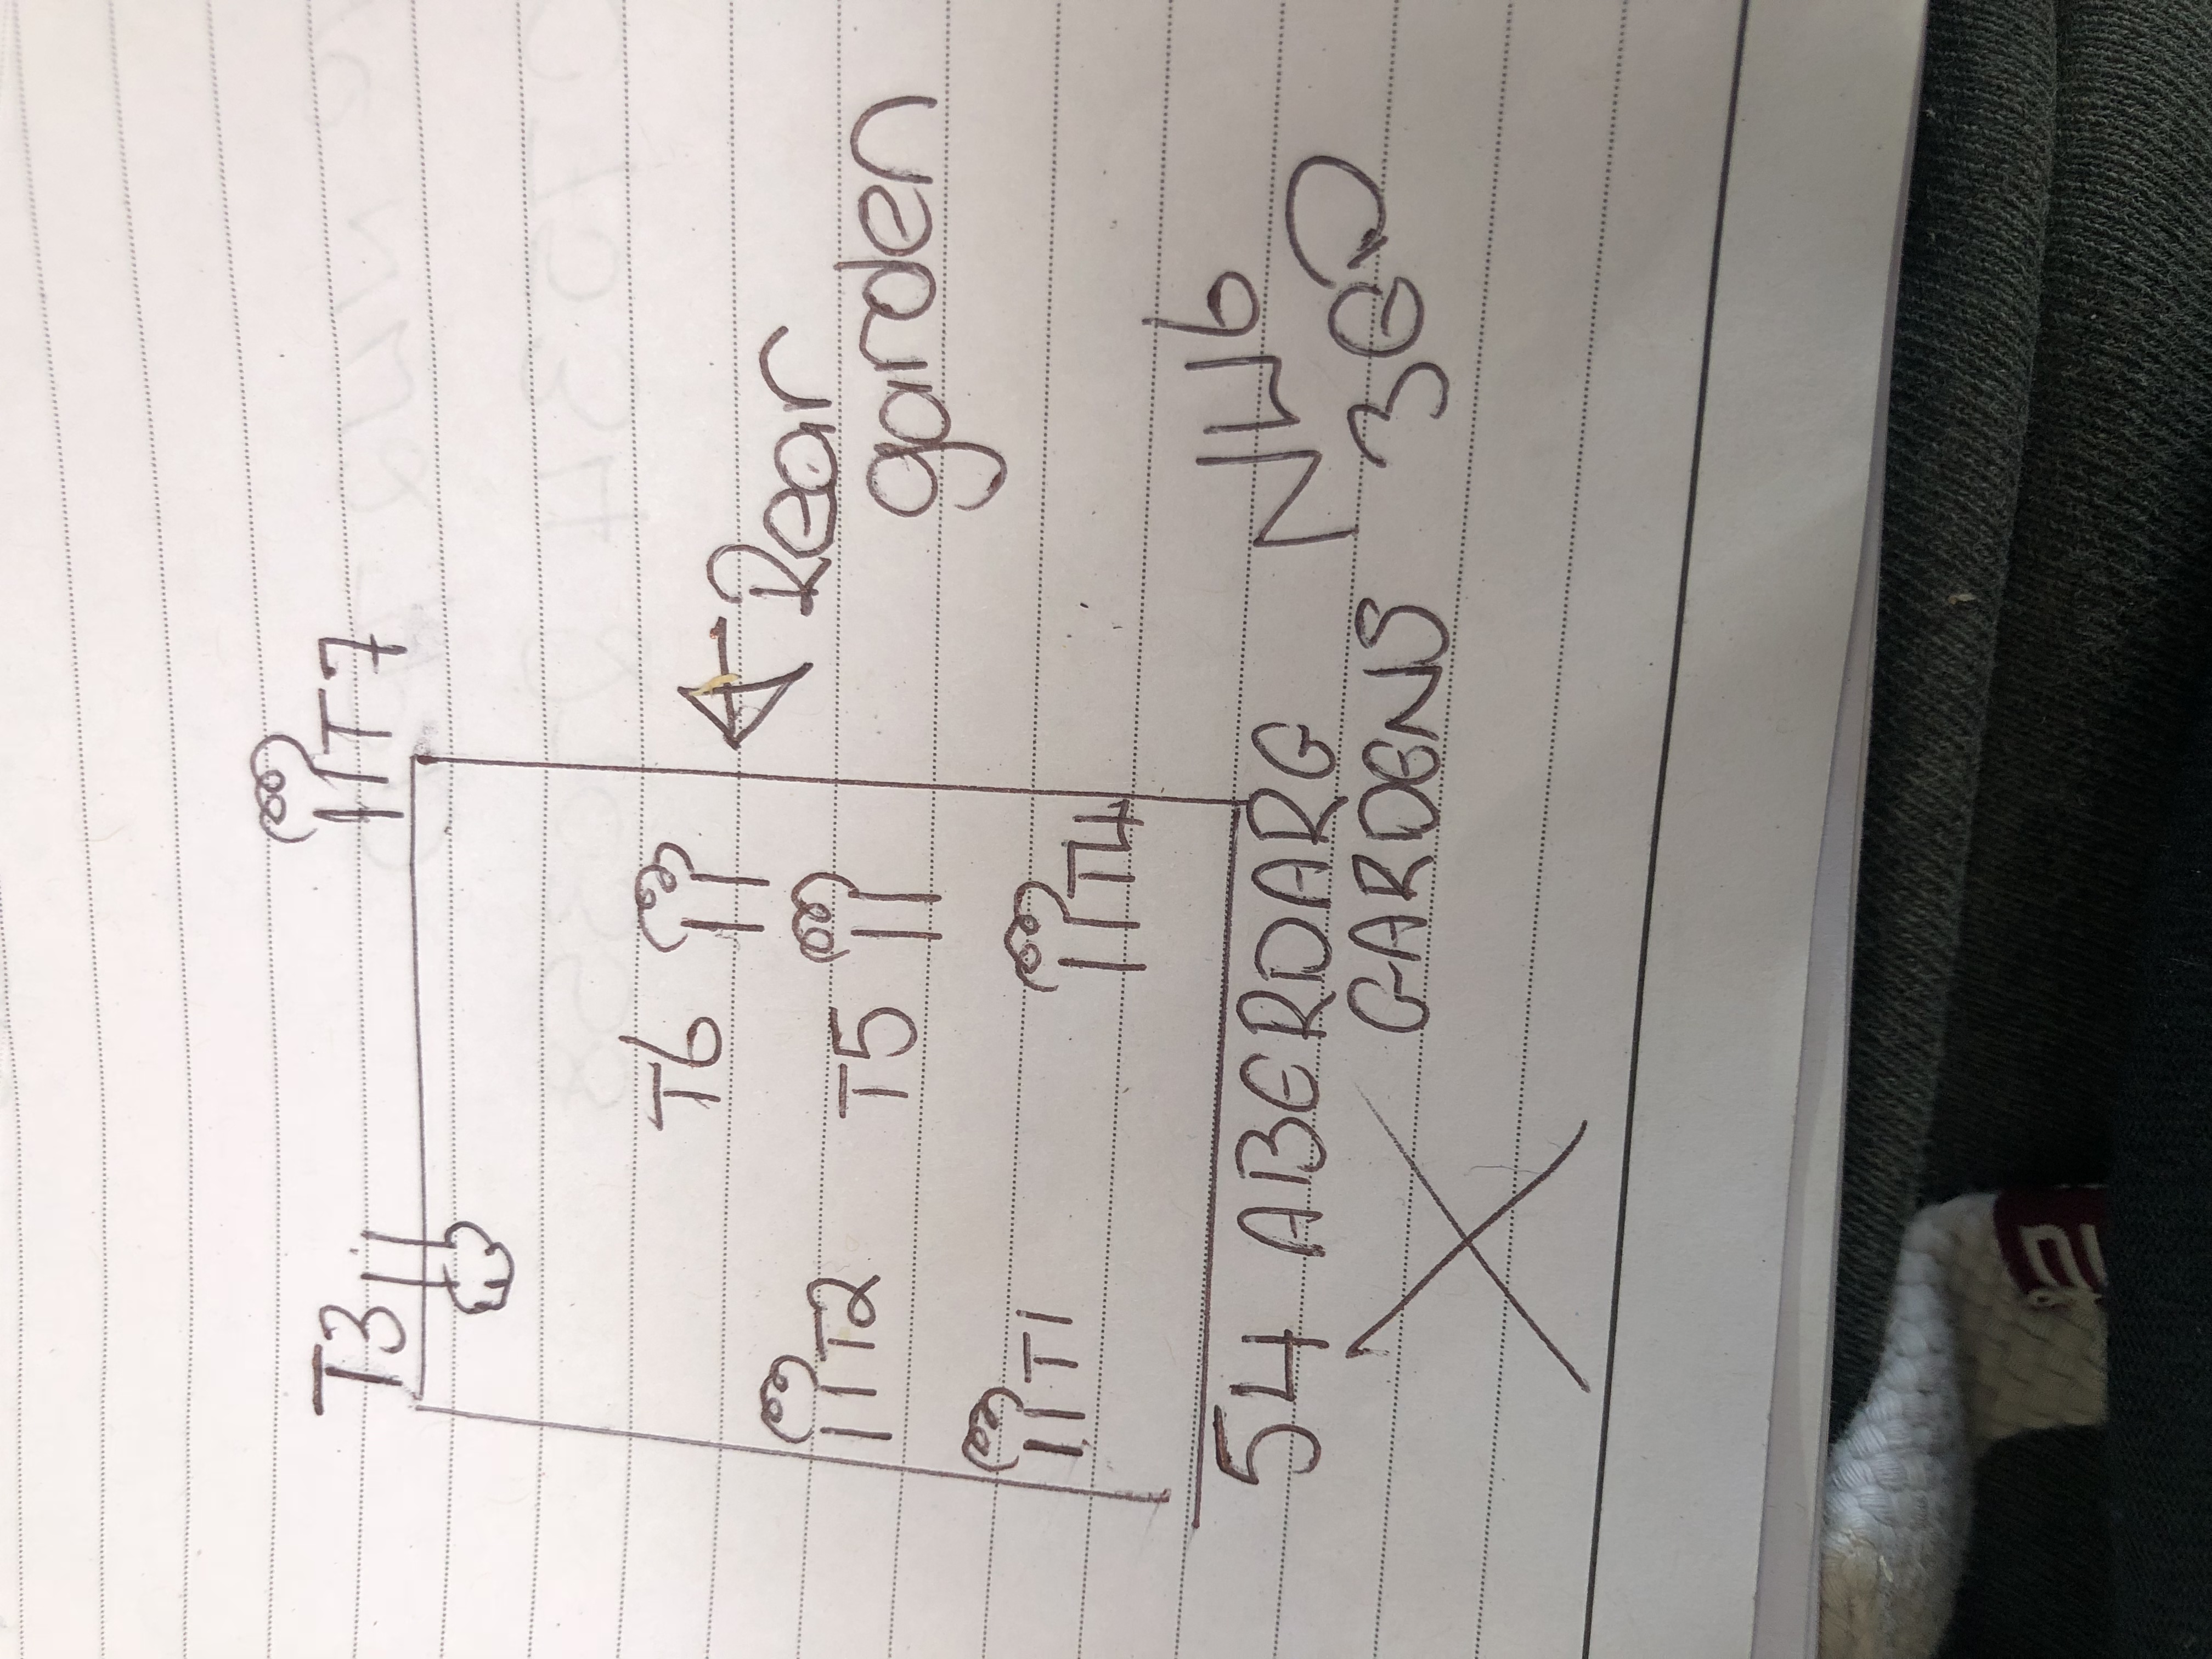 T3 T7
T6
Rear
T2 T5
garden
T1 T4
54 ABERDARE NW6
GARDENS 3QD